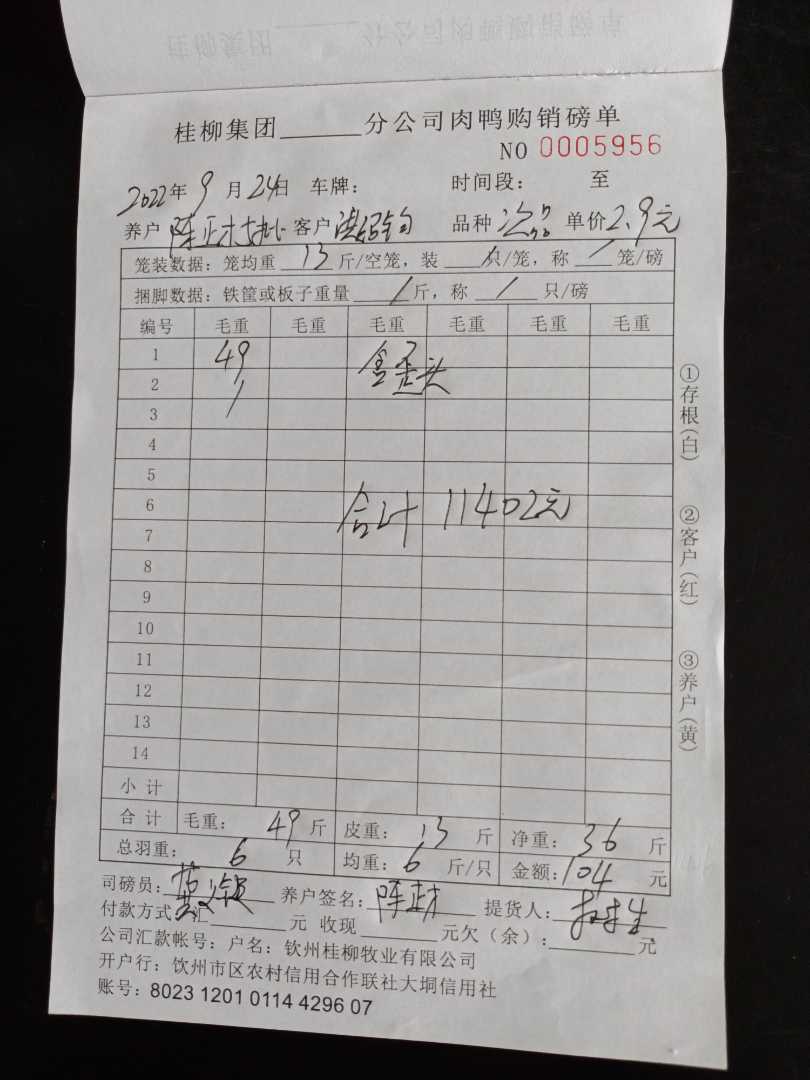 桂柳集团______分公司肉鸭购销磅单
NO 0005956
2022年9月24日 车牌: 时间段: 至
养户 陈正才 客户 洪绍钧 品种 次品 单价2.9元
笼装数据: 笼均重 13 斤/空笼, 装 / 只/笼, 称 / 笼/磅
捆脚数据: 铁筐或板子重量 / 斤, 称 / 只/磅
编号 毛重 毛重 毛重 毛重 毛重 毛重
1 49 含歪头
2 /
3
4
5
6 合计 11402元
7
8
9
10
11
12
13
14
小计
合计 毛重: 49 斤 皮重: 13 斤 净重: 36 斤
总羽重: 6 只 均重: 6 斤/只 金额: 104 元
司磅员: 养户签名: 陈正才 提货人:
付款方式: 汇______元 收现______元欠(余): ______元
公司汇款帐号: 户名: 钦州桂柳牧业有限公司
开户行: 饮州市区农村信用合作联社大垌信用社
账号: 8023 1201 0114 4296 07
①存根(白)
②客户(红)
③养户(黄)